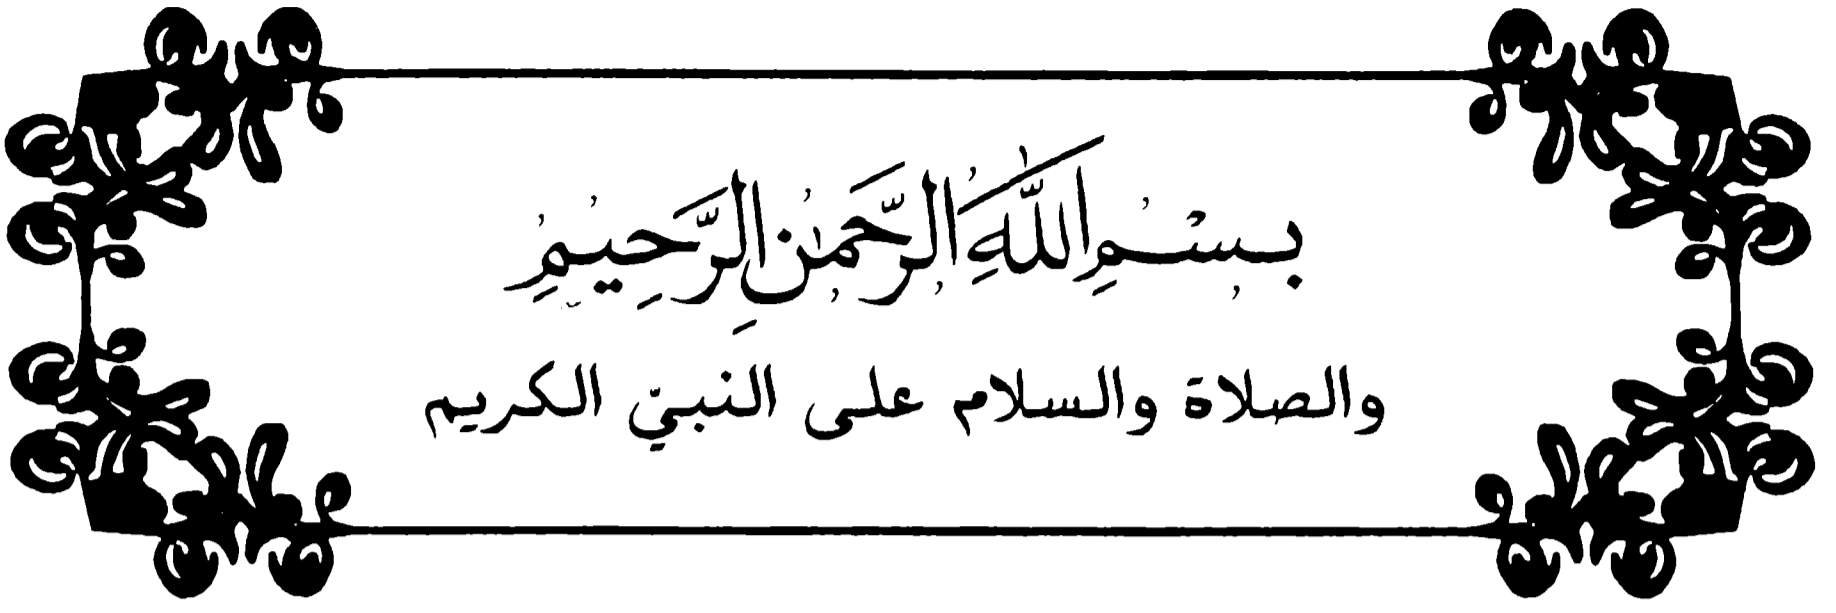 بِسْمِ اللَّهِ الرَّحْمَٰنِ الرَّحِيمِ
والصلاة والسلام على النبيّ الكريم